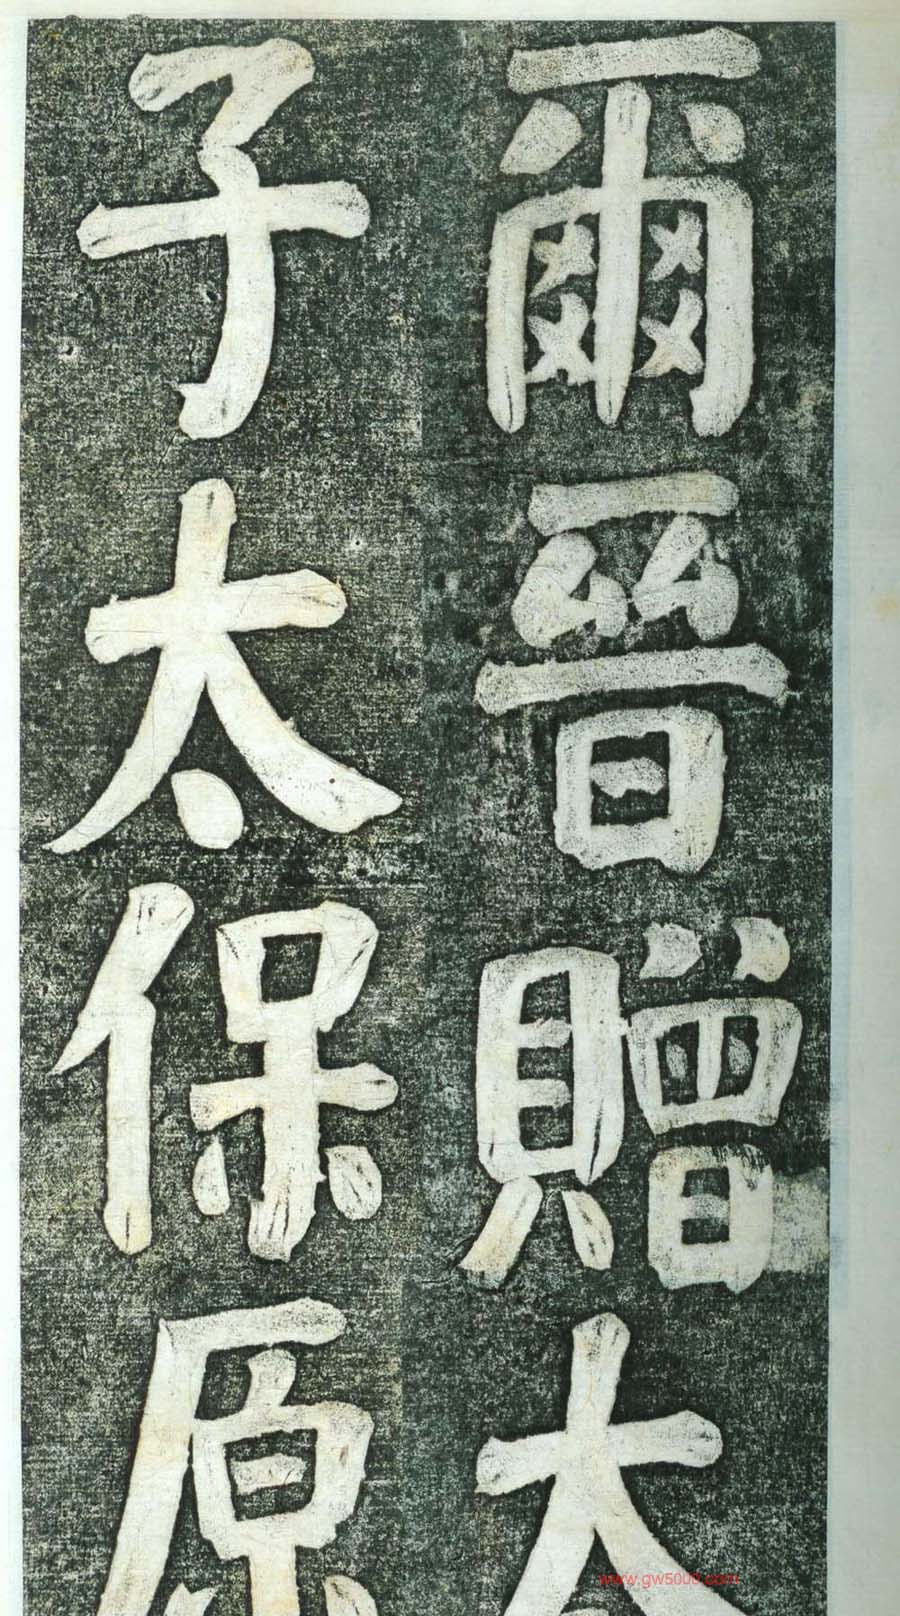 爾晉贈太
子太保原
www.gw5000.com